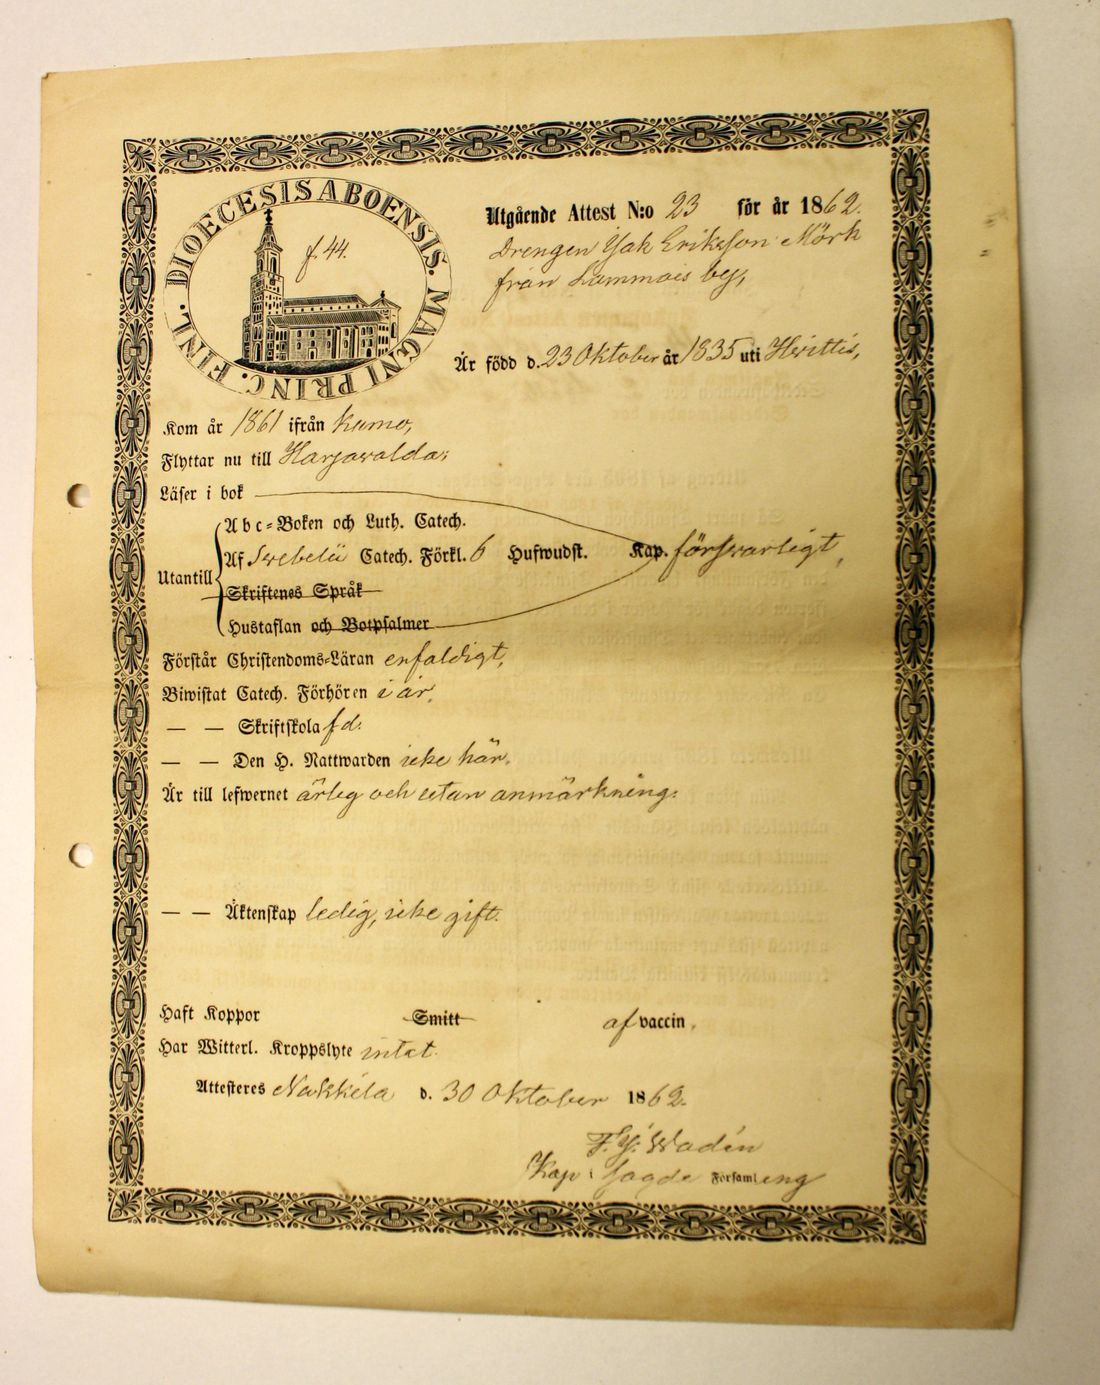 DIOECESIS ABOENSIS. MAGNI PRINC. FINL.
f. 44.
Utgående Attest N:o 23 för år 1862.
Drengen Isak Eriksson Mörk
från Lammais by,
Är född d. 23 Oktober år 1835 uti Hvittis,
Kom år 1861 ifrån Kumo,
Flyttar nu till Harjavalda;
Läser i bok
Utantill
Abc-Boken och Luth. Catech.
Af Svebelii Catech. Förkl. 6 Hufwudst. Kap. försvarligt,
Skriftenes Språk
Hustaflan och Botpsalmer
Förstår Christendoms-Läran enfaldigt,
Biwistat Catech. Förhören i år,
— — Skriftskola f d.
— — Den H. Nattwarden icke här.
Är till lefwernet ärlig och utan anmärkning.
— — Äktenskap ledig, icke gift.
Haft Koppor Smitt af vaccin.
Har Witterl. Kroppslyte intet.
Attesteres Nakkila d. 30 Oktober 1862.
Wadén
Kap. i Församl.eng